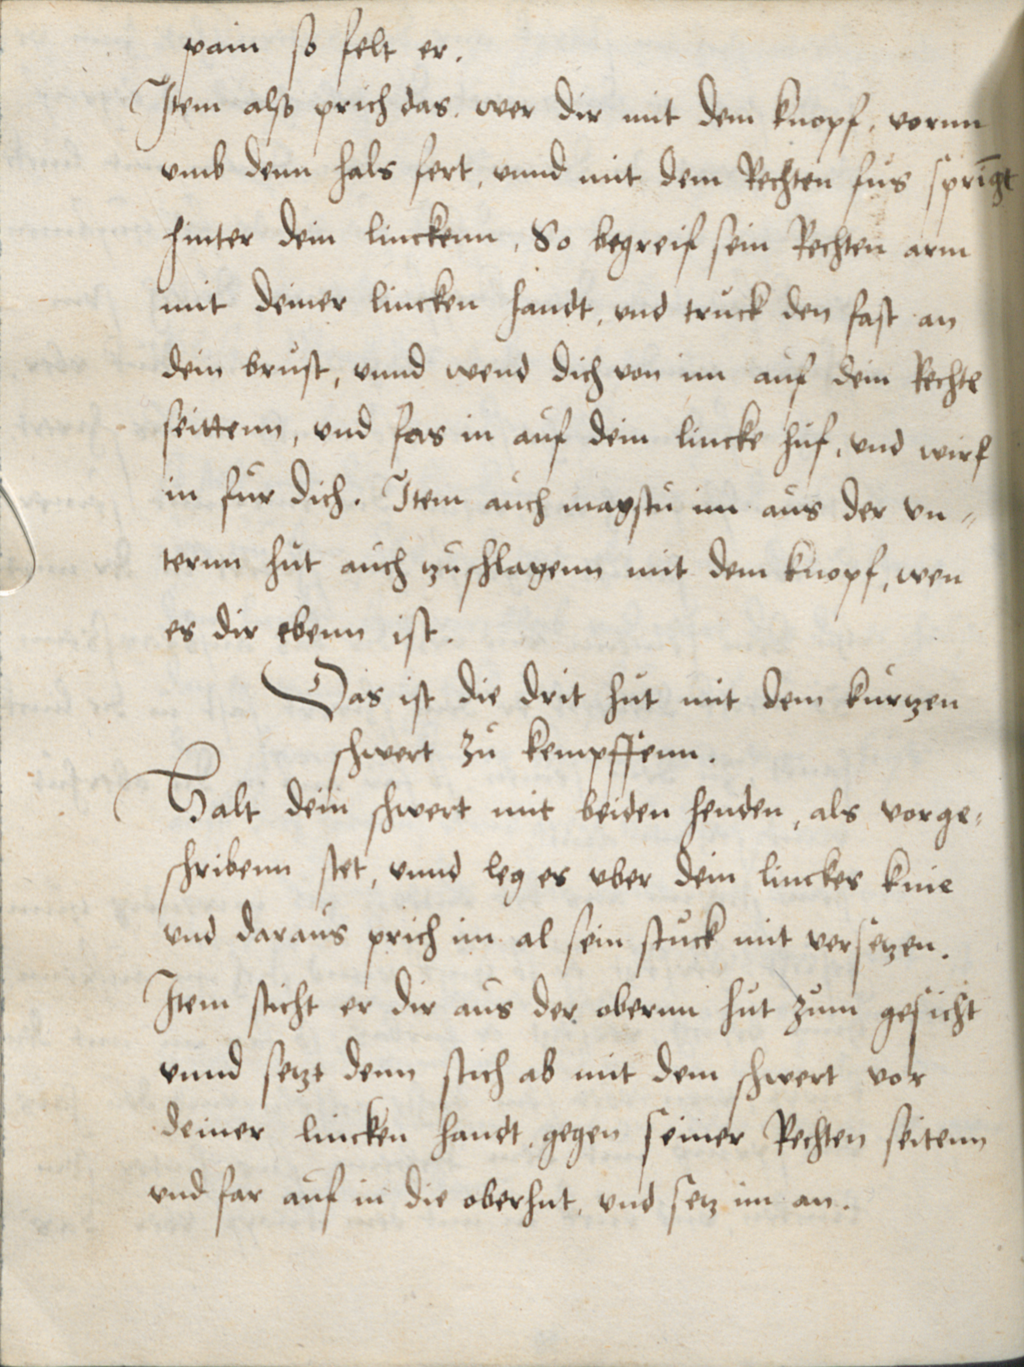 pain so felt er.
Item alſo prich das. wer dir mit dem knopf, vornn
vmb denn hals fert, vnnd mit dem Rechten fus sprīgt
hinter dein linckenn, So begreif sein Rechten arm
mit deiner lincken handt, vnd truck den fast an
dein brust, vnnd wend dich von im auf dein Rechte
seittenn, vnd fas in auf dein lincke huf, vnd wirf
in fur dich. Item auch magstu im aus der vn=
ternn hut auch zuschlagenn mit dem knopf, wen
es dir ebenn ist.
Das ist die drit hut mit dem kurtzen
schwert zu kempffenn.
Halt dein schwert mit beiden henden, als vorge=
schribenn stet, vnnd leg es vber dein linckes knie
vnd daraus prich im al sein stuck mit versetzen.
Item sticht er dir aus der obernn hut zum gesicht
vnnd setzt denn stich ab mit dem schwert vor
deiner lincken handt, gegen seiner Rechten seitenn
vnd far auf in die oberhut, vnd setz im an.